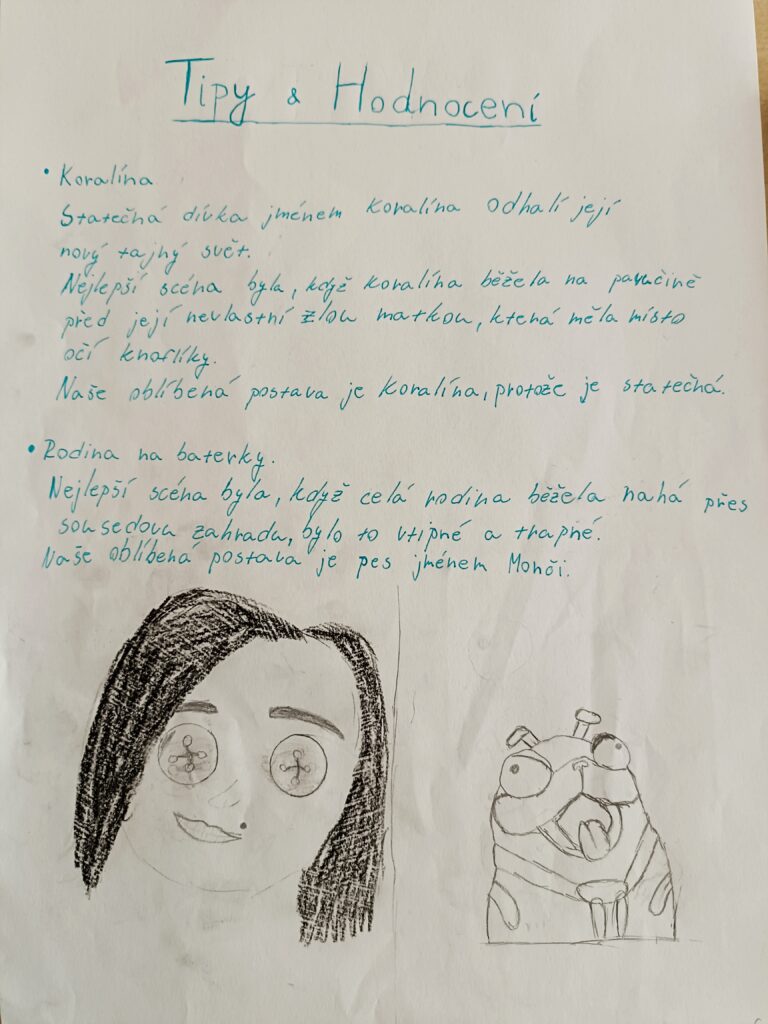 Tipy & Hodnocení
• Koralína
Statečná dívka jménem Koralína odhalí její
nový tajný svět.
Nejlepší scéna byla, když Koralína běžela na pavučině
před její nevlastní zlou matkou, která měla místo
očí knoflíky.
Naše oblíbená postava je Koralína, protože je statečná.
• Rodina na baterky.
Nejlepší scéna byla, když celá rodina běžela nahá přes
sousedovu zahradu, bylo to vtipné a trapné.
Naše oblíbená postava je pes jménem Monči.